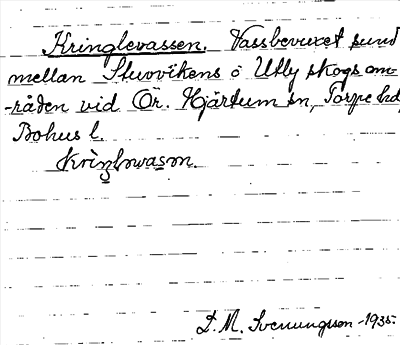 Kringlevassen. Vassbevuxet sund
mellan Stuvvikens o Utby skogsom-
-råden vid Ör. Hjärtum sn, Torpe hd
Bohus l.
D. M. Svenungsson -1935.